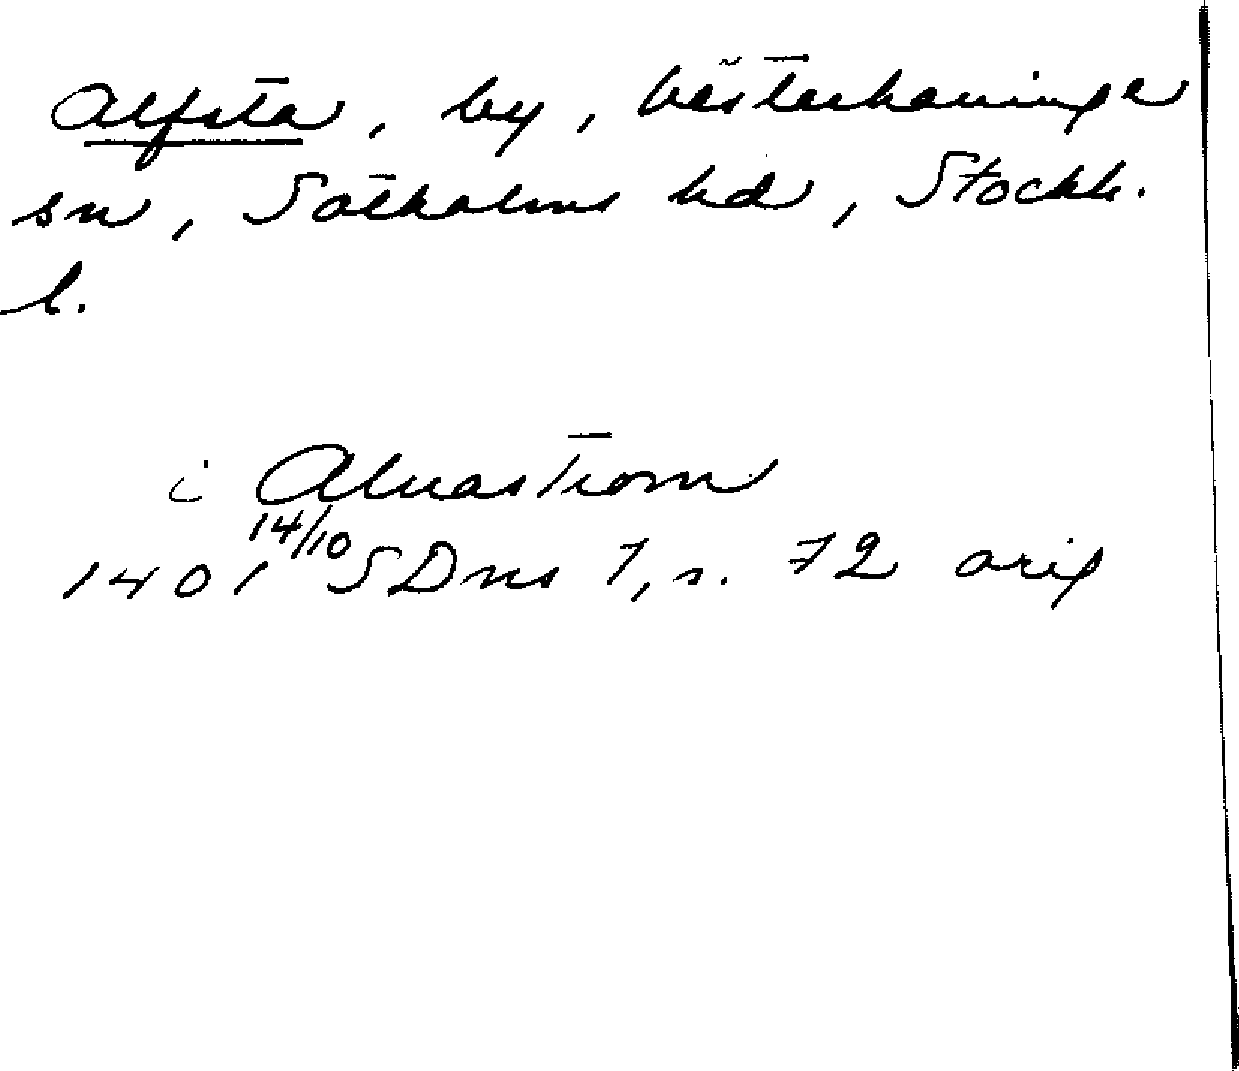 Alfsta, by, Västerhaninge
sn, Sotholms hd, Stockh.
l.
i Aluastrom
1401 14/10 SDns 1, s. 72 orig